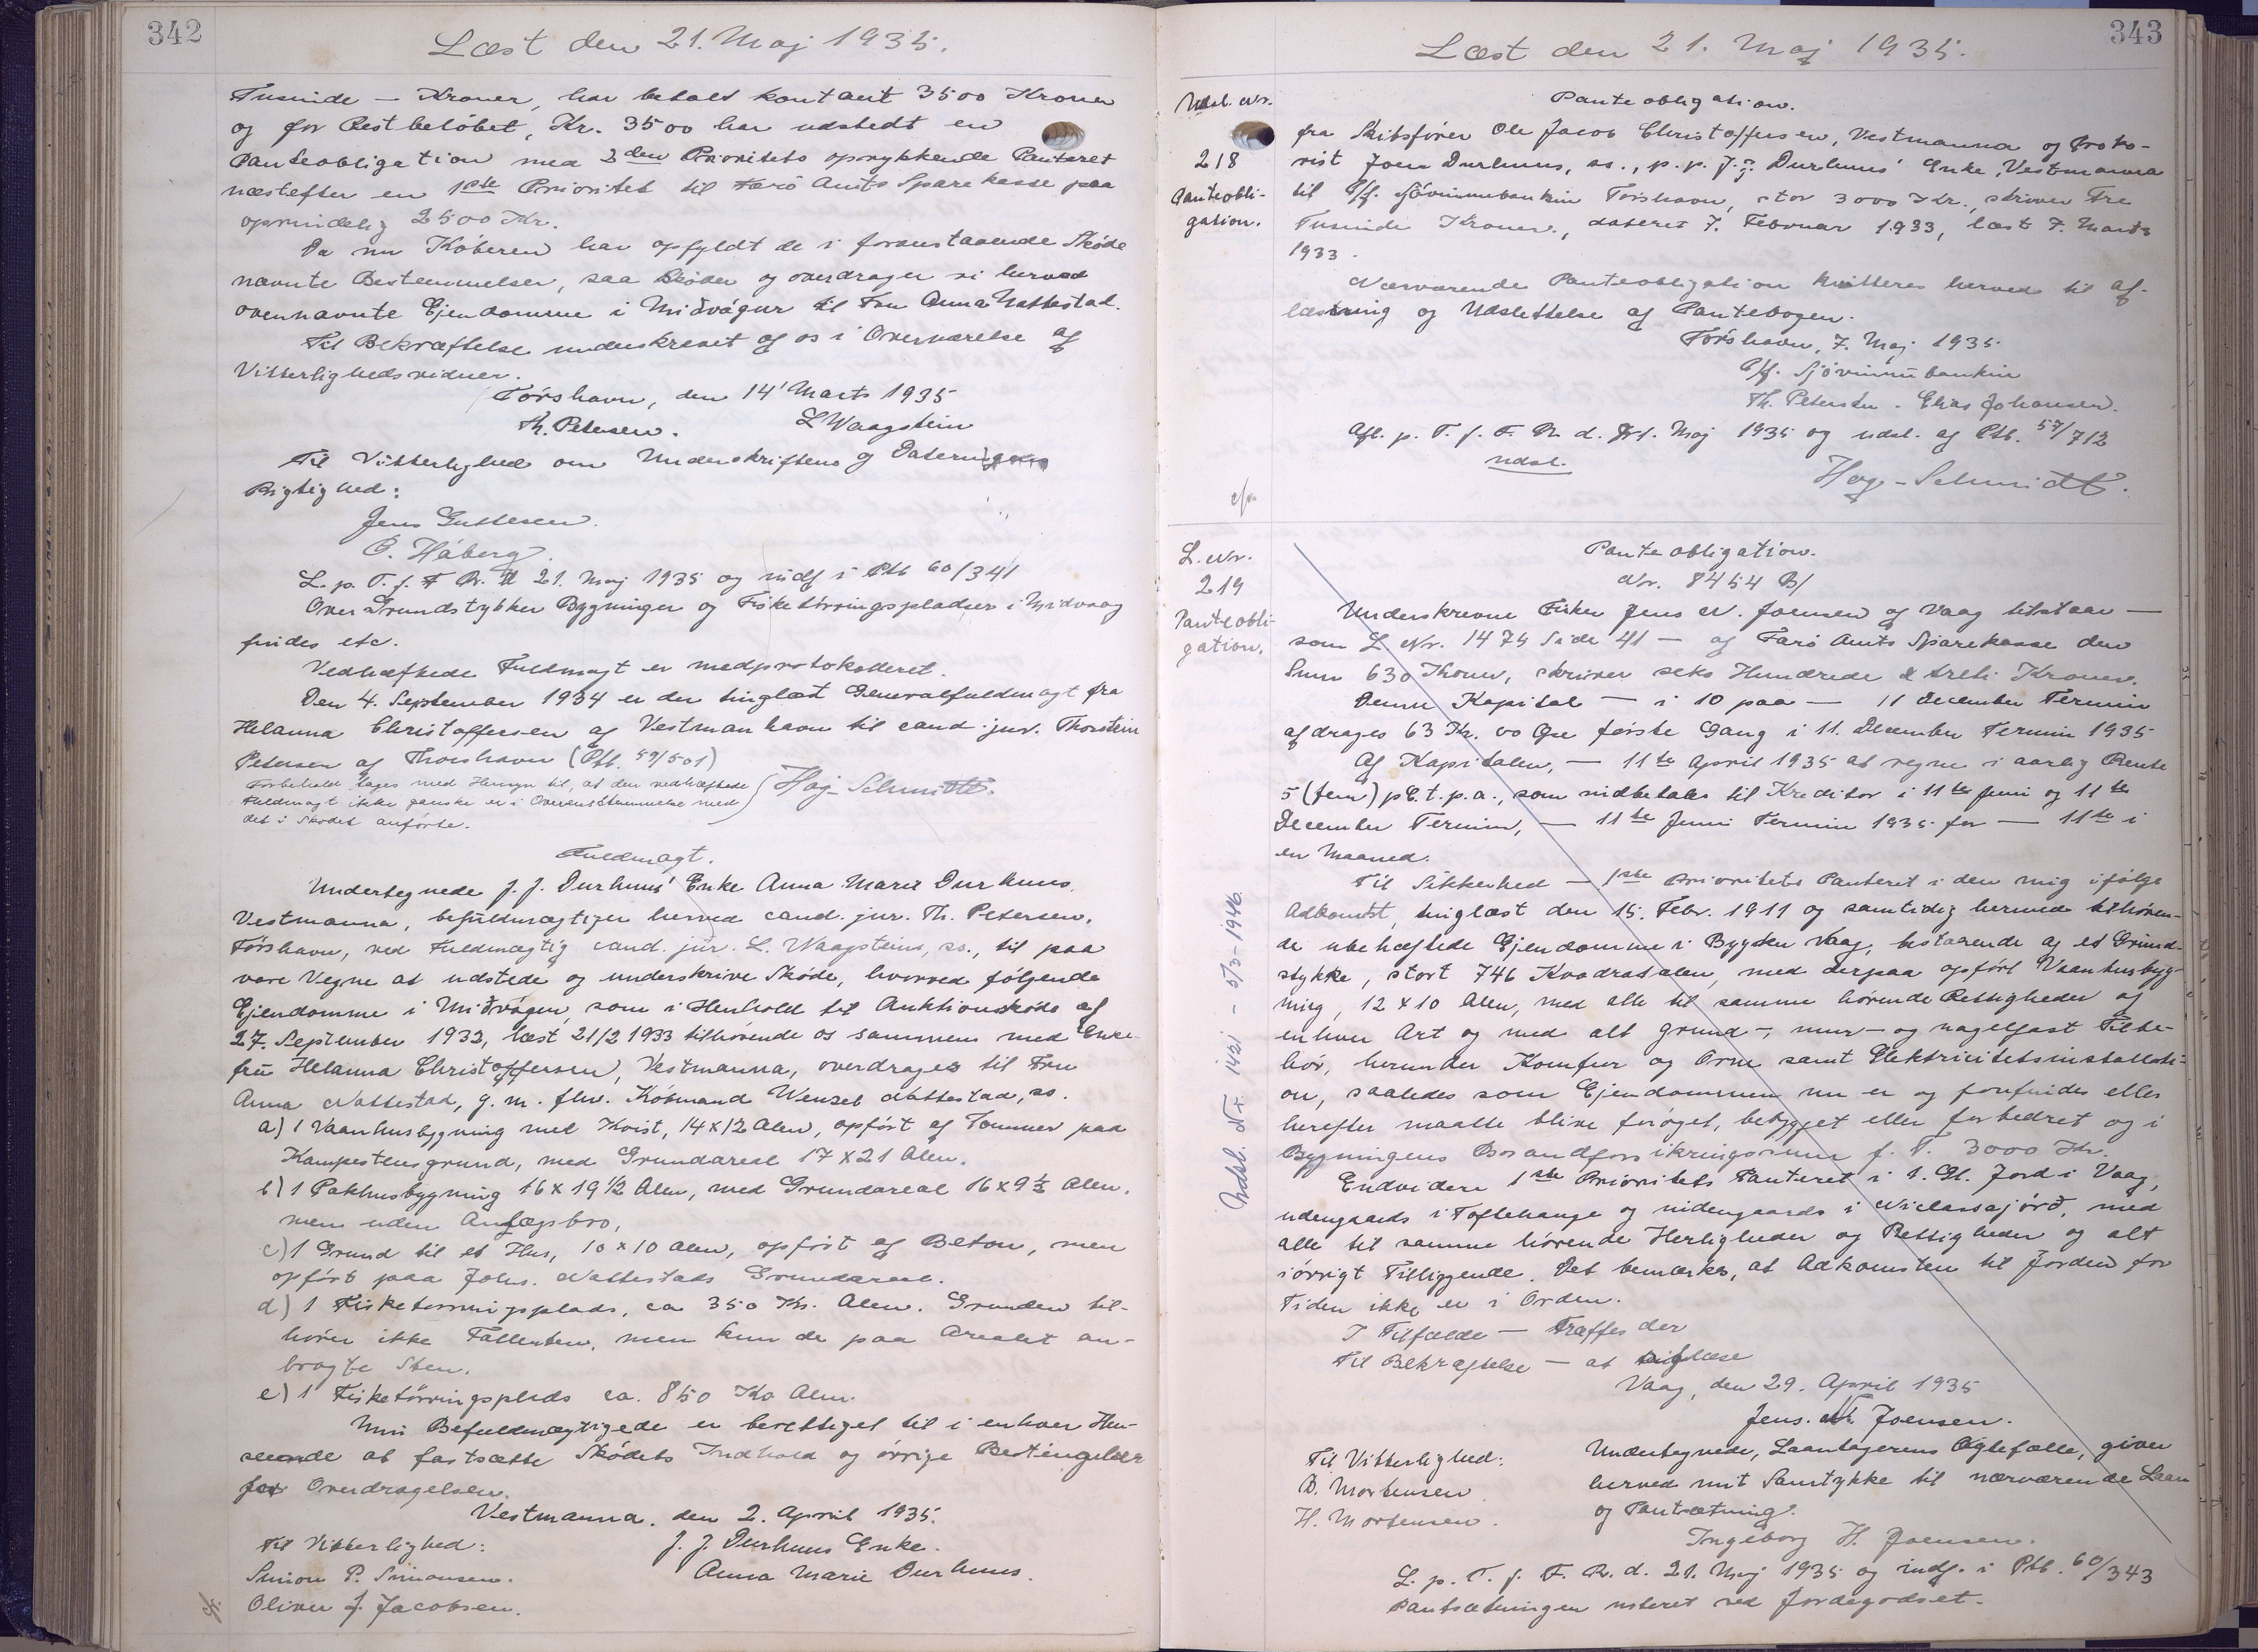 342
Læst den 21. Maj 1935.
Tusinde — Kroner, har betalt kontant 3500 Kroner
og for Restbeløbet, Kr. 3500 har udstedt en
Panteobligation med 2den Prioritets oprykkende Panteret
næstefter en 1ste Prioritet til Færö Amts Sparekasse paa
oprindelig 2500 Kr.
Da nu Köberen har opfyldt de i foranstaaende Sköde
nævnte Bestemmelser, saa sköder og overdrager vi herved
ovennævnte Ejendomme i Miðvágur til Fru Anna Nattestad.
Til Bekræftelse underskrevet af os i Overværelse af
Vitterlighedsvidner.
Tórshavn, den 14' Marts 1935
Th. Petersen. L Waagstein
Til Vitterlighed om Underskriftens og Dateringens
Rigtighed:
Jens Guttesen.
C. Háberg.
L. p. T. f. F R. d 21. Maj 1935 og indf i Ptb 60/341
Over Grundstykker Bygninger og Fisketörringspladser i Midvaag
findes etc.
Vedhæftede Fuldmagt er medprotokolleret.
Den 4. September 1934 er der tinglæst Generalfuldmagt fra
Helanna Christoffersen af Vestmanhavn til cand. jur. Thorstein
Petersen af Thorshavn (Ptb. 59/501)
Forbehold tages med Hensyn til, at den vedhæftede
Fuldmagt ikke ganske er i Overensstemmelse med
det i Skødet anførte.
Høg-Schmidt.
Fuldmagt.
Undertegnede J. J. Durhuus' Enke Anna Marie Durhuus,
Vestmanna, befuldmægtiger herved cand. jur. Th. Petersen,
Tórshavn, ved Fuldmægtig cand. jur. L. Waagstein, ss., til paa
vore Vegne at udstede og underskrive Sköde, hvorved følgende
Ejendomme i Miðvágur, som i Henhold til Auktionsskøde af
27. September 1932, læst 21/2 1933 tilhörende os sammen med Enke-
frú Helanna Christoffersen, Vestmanna, overdrages til Fru
Anna Nattestad, g. m. fhv. Köbmand Wenzel Nattestad, ss.
a) 1 Vaanhusbygning med Kvist, 14 x 12 Alen, opfört af Tømmer paa
Kampestensgrund, med Grundareal 17 x 21 Alen.
b) 1 Pakhusbygning 16 x 19 1/2 Alen, med Grundareal 16 x 9 1/2 Alen,
men uden Anlægsbro,
c) 1 Grund til et Hus, 10 x 10 Alen, opfört af Beton, men
opfört paa Johs. Nattestads Grundareal.
d) 1 Fisketørringsplads, ca 350 Kv. Alen. Grunden til-
hörer ikke Fallenten, men kun de paa Arealet an-
bragte Sten.
e) 1 Fisketörringsplads ca. 850 Kv Alen.
Min Befuldmægtigede er berettiget til i enhver Hen-
seende at fastsætte Skødets Indhold og övrige Betingelser
for Overdragelsen.
Vestmanna, den 2. April 1935.
Til Vitterlighed: J. J. Durhuus Enke.
Simon P. Simonsen. Anna Marie Durhuus.
Oliver J. Jacobsen.
343
Læst den 21. Maj 1935.
Udsl. Nr.
218
Panteobli-
gation.
Panteobligation.
fra Skibsfører Ole Jacob Christoffersen, Vestmanna og Proku-
rist Joen Durhuus, ss., p. p. J. J. Durhuus' Enke, Vestmanna
til P/f. Sjóvinnubankin Tórshavn, stor 3000 Kr., skriver Tre
Tusinde Kroner, dateret 7. Februar 1933, læst 7. Marts
1933.
Nærværende Panteobligation kvitteres herved til af-
læsning og Udslettelse af Pantebogen.
Tórshavn, 7. Maj 1935
P/f. Sjóvinnubankin
Th. Petersen. Elias Johansen.
Afl. p. T. f. F. R. d. 21. Maj 1935 og udsl. af Ptb. 57/712
udsl.
Høg-Schmidt.
L. Nr.
219
Panteobli-
gation.
Panteobligation.
Nr. 8454 B/
Underskrevne Fisker Jens N. Joensen af Vaag tilstaar —
som L. Nr. 1474 Side 41 — af Færö Amts Sparekasse den
Sum 630 Kroner, skriver seks Hundrede & treti Kroner.
Denne Kapital — i 10 paa — 11 December Termin
afdrages 63 Kr. 00 Øre første Gang i 11. December Termin 1935
Af Kapitalen, — 11te April 1935 at regne i aarlig Rente
5 (fem) pCt. p. a., som indbetales til Kreditor i 11te Juni og 11te
December Termin, — 11te Juni Termin 1935 for — 11te i
en Maaned.
Til Sikkerhed — 1ste Prioritets Panteret i den mig ifølge
Adkomst, tinglæst den 15. Febr. 1911 og samtidig hermed tilhören-
de ubehæftede Ejendomme i Bygden Vaag, bestaaende af et Grund-
stykke, stort 746 Kvadratalen, med derpaa opfört Vaanhusbyg-
ning, 12 x 10 Alen, med alle til samme hörende Rettigheder af
enhver Art og med alt grund-, mur- og nagelfast Tilbe-
hör, herunder Komfur og Ovne samt Elektricitetsinstallati-
on, saaledes som Ejendommen nu er og forefindes eller
herefter maatte blive foröget, bebygget eller forbedret og i
Bygningens Brandforsikringssum f. T. 3000 Kr.
Endvidere 1ste Prioritets Panteret i 1. Gl. Jord i Vaag,
udengaards i Toftehauge og indengaards i Niclassajørð, med
alle til samme hörende Herligheder og Rettigheder og alt
iövrigt Tilliggende. Det bemærkes, at Adkomsten til Jorden for
Tiden ikke er i Orden.
I Tilfælde — træffes der
Til Bekræftelse — at tinglæse
Vaag, den 29. April 1935
Jens. N. Joensen.
Til Vitterlighed: Undertegnede, Laantagerens Ægtefælle, giver
D. Mortensen herved mit Samtykke til nærværende Laan
H. Mortensen. og Pantsætning.
Ingeborg H. Joensen.
L. p. T. f. F. R. d. 21. Maj 1935 og indf. i Ptb. 60/343
Pantsætningen noteret ved Jordegodset.
Udsl. Nr. 1421 - 5/3-1946.